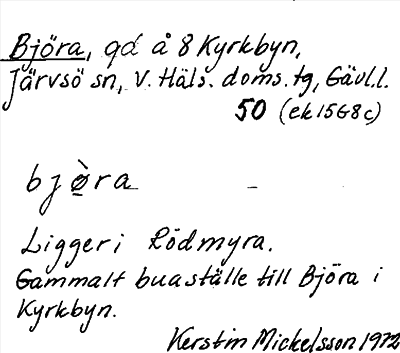 Björa, gd å 8 Kyrkbyn,
Järvsö sn, V. Häls. doms. tg, Gävl.l.
50 (ek 15G8c)
bjø̱̀ra
Ligger i Rödmyra.
Gammalt buaställe till Björa i
Kyrkbyn.
Kerstin Mickelsson 1972